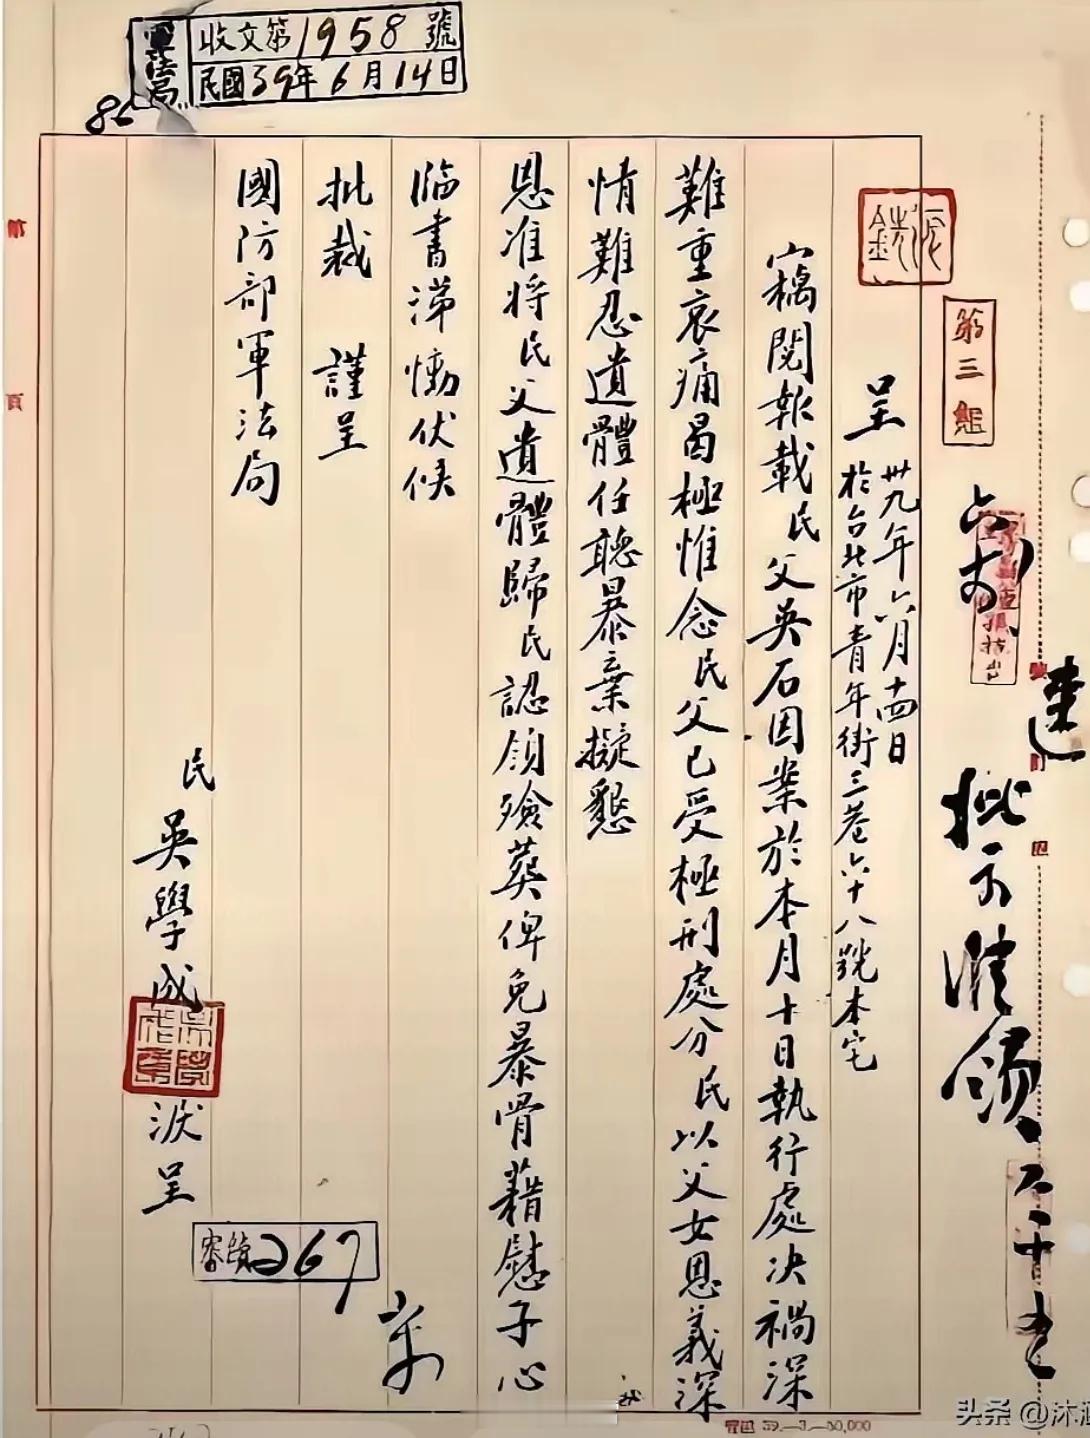 收文第1958號
民國39年6月14日
軍法局
第三組
速
批示准領
六十五
呈 卅九年六月十四日
於台北市青年街三巷六十八號本宅
竊閱報載民父吳石因案於本月十日執行處決禍深
難重哀痛曷極惟念民父已受極刑處分民以父女恩義深
情難忍遺體任聽暴棄擬懇
恩准將民父遺體歸民認領殮葬俾免暴骨藉慰子心
臨書涕慟伏候
批裁 謹呈
國防部軍法局
民吳學成淚呈
267
頁
頭條@沐